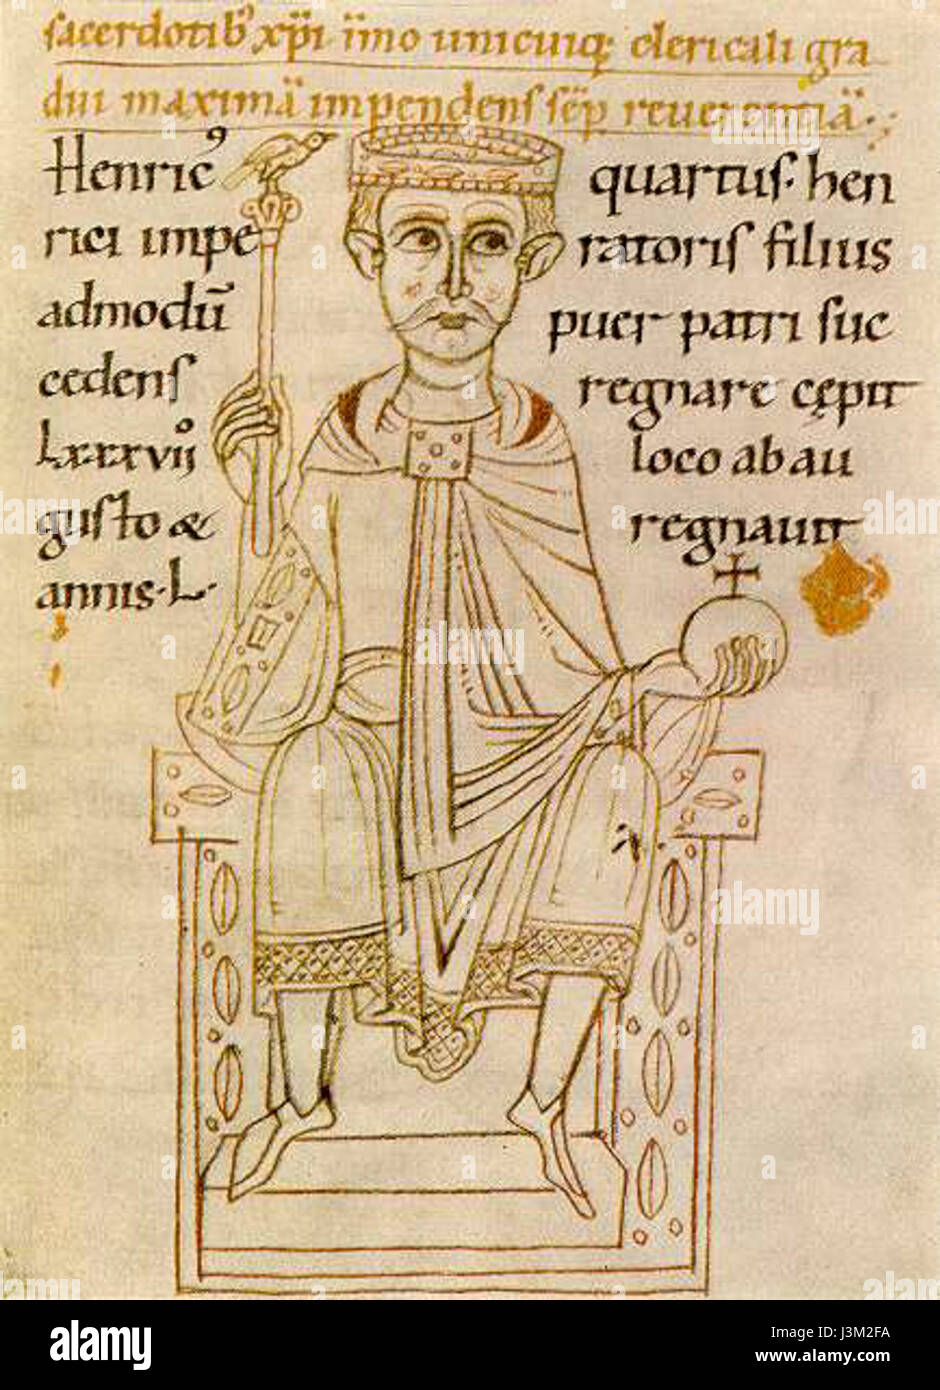 sacerdotib⁹ xp̄i īmo unicuiq; clericali gra
dui maximā impendens sēp reuerentiā.
Henric⁹ quartus. hen
rici impe ratoris filius
admodū puer patri suc
cedens regnare cępit
lxxxvııº loco ab au
gusto & regnauit
annis. L.
alamy
alamy stock photo
alamy
Image ID: J3M2FA
www.alamy.com